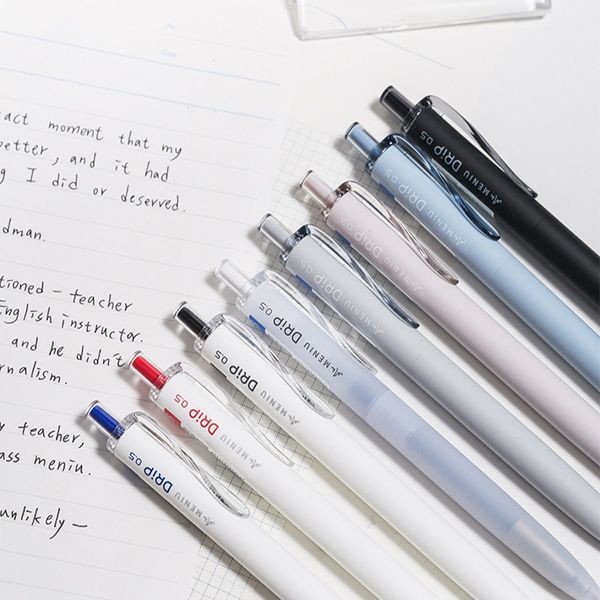 No.
Date
act moment that my
better, and it had
g I did or deserved.
dman.
tioned - teacher
English instructor.
and he didn't
rnalism.
y teacher,
ass meniu.
unlikely —
A·MENIU DRiP 0.5
A·MENIU DRiP 0.5
A·MENIU DRiP 0.5
A·MENIU DRiP 0.5
A·MENIU DRiP 0.5
A·MENIU DRiP 0.5
A·MENIU DRiP 0.5
A·MENIU DRiP 0.5